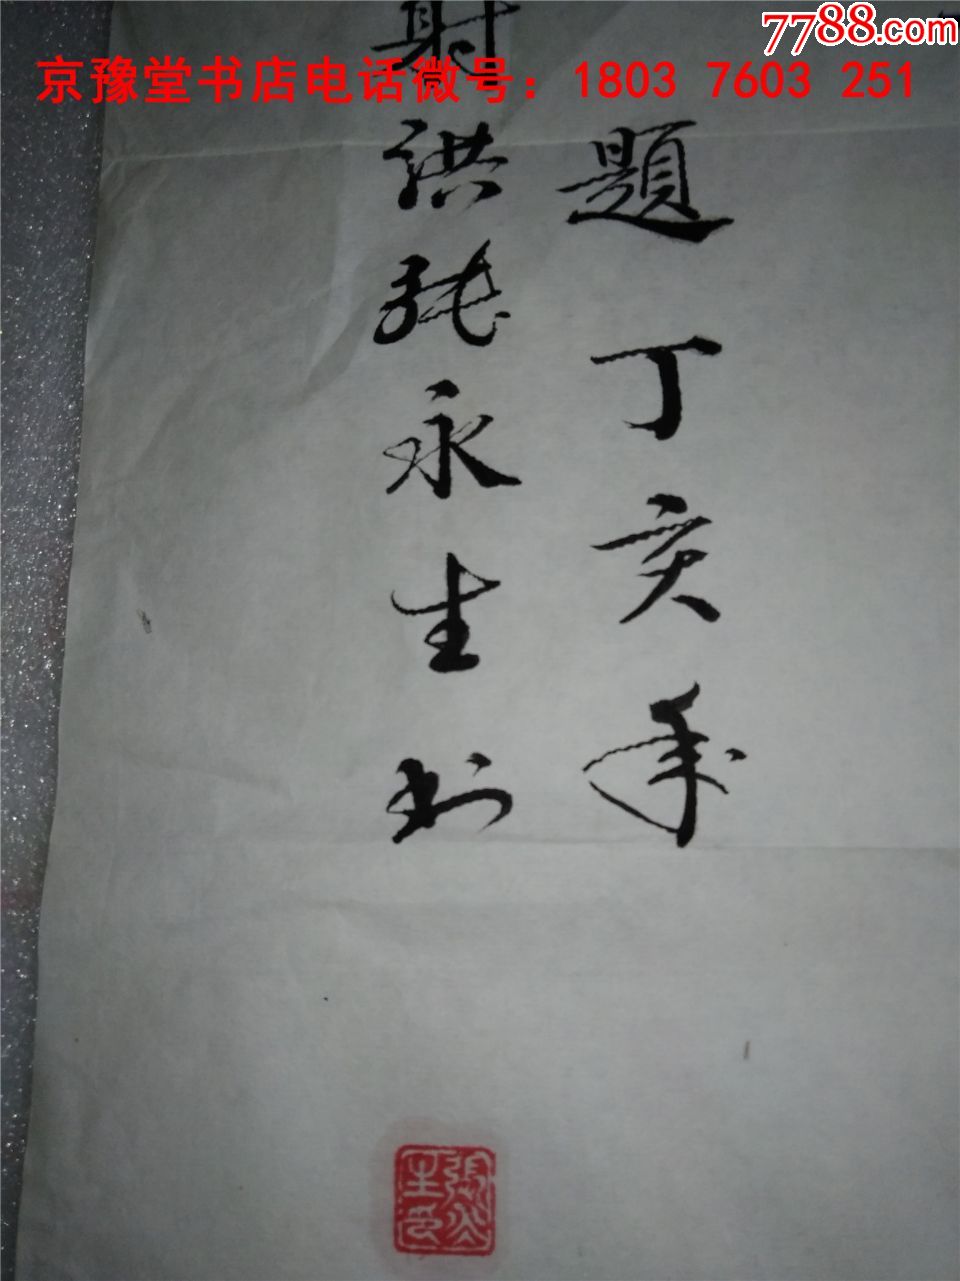 7788.com
京豫堂书店电话微号：1803 7603 251
題丁亥年
射洪张永生书
张永生印